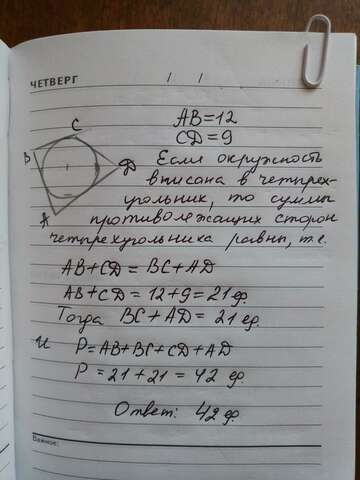 ЧЕТВЕРГ
AB=12
CD=9
C
B
D
A
Если окружность
вписана в четырех-
угольник, то суммы
противолежащих сторон
четырехугольника равны, т.е.
AB+CD=BC+AD
AB+CD=12+9=21 ед.
Тогда BC+AD=21 ед.
и P=AB+BC+CD+AD
P=21+21=42 ед.
Ответ: 42 ед.
Важное: